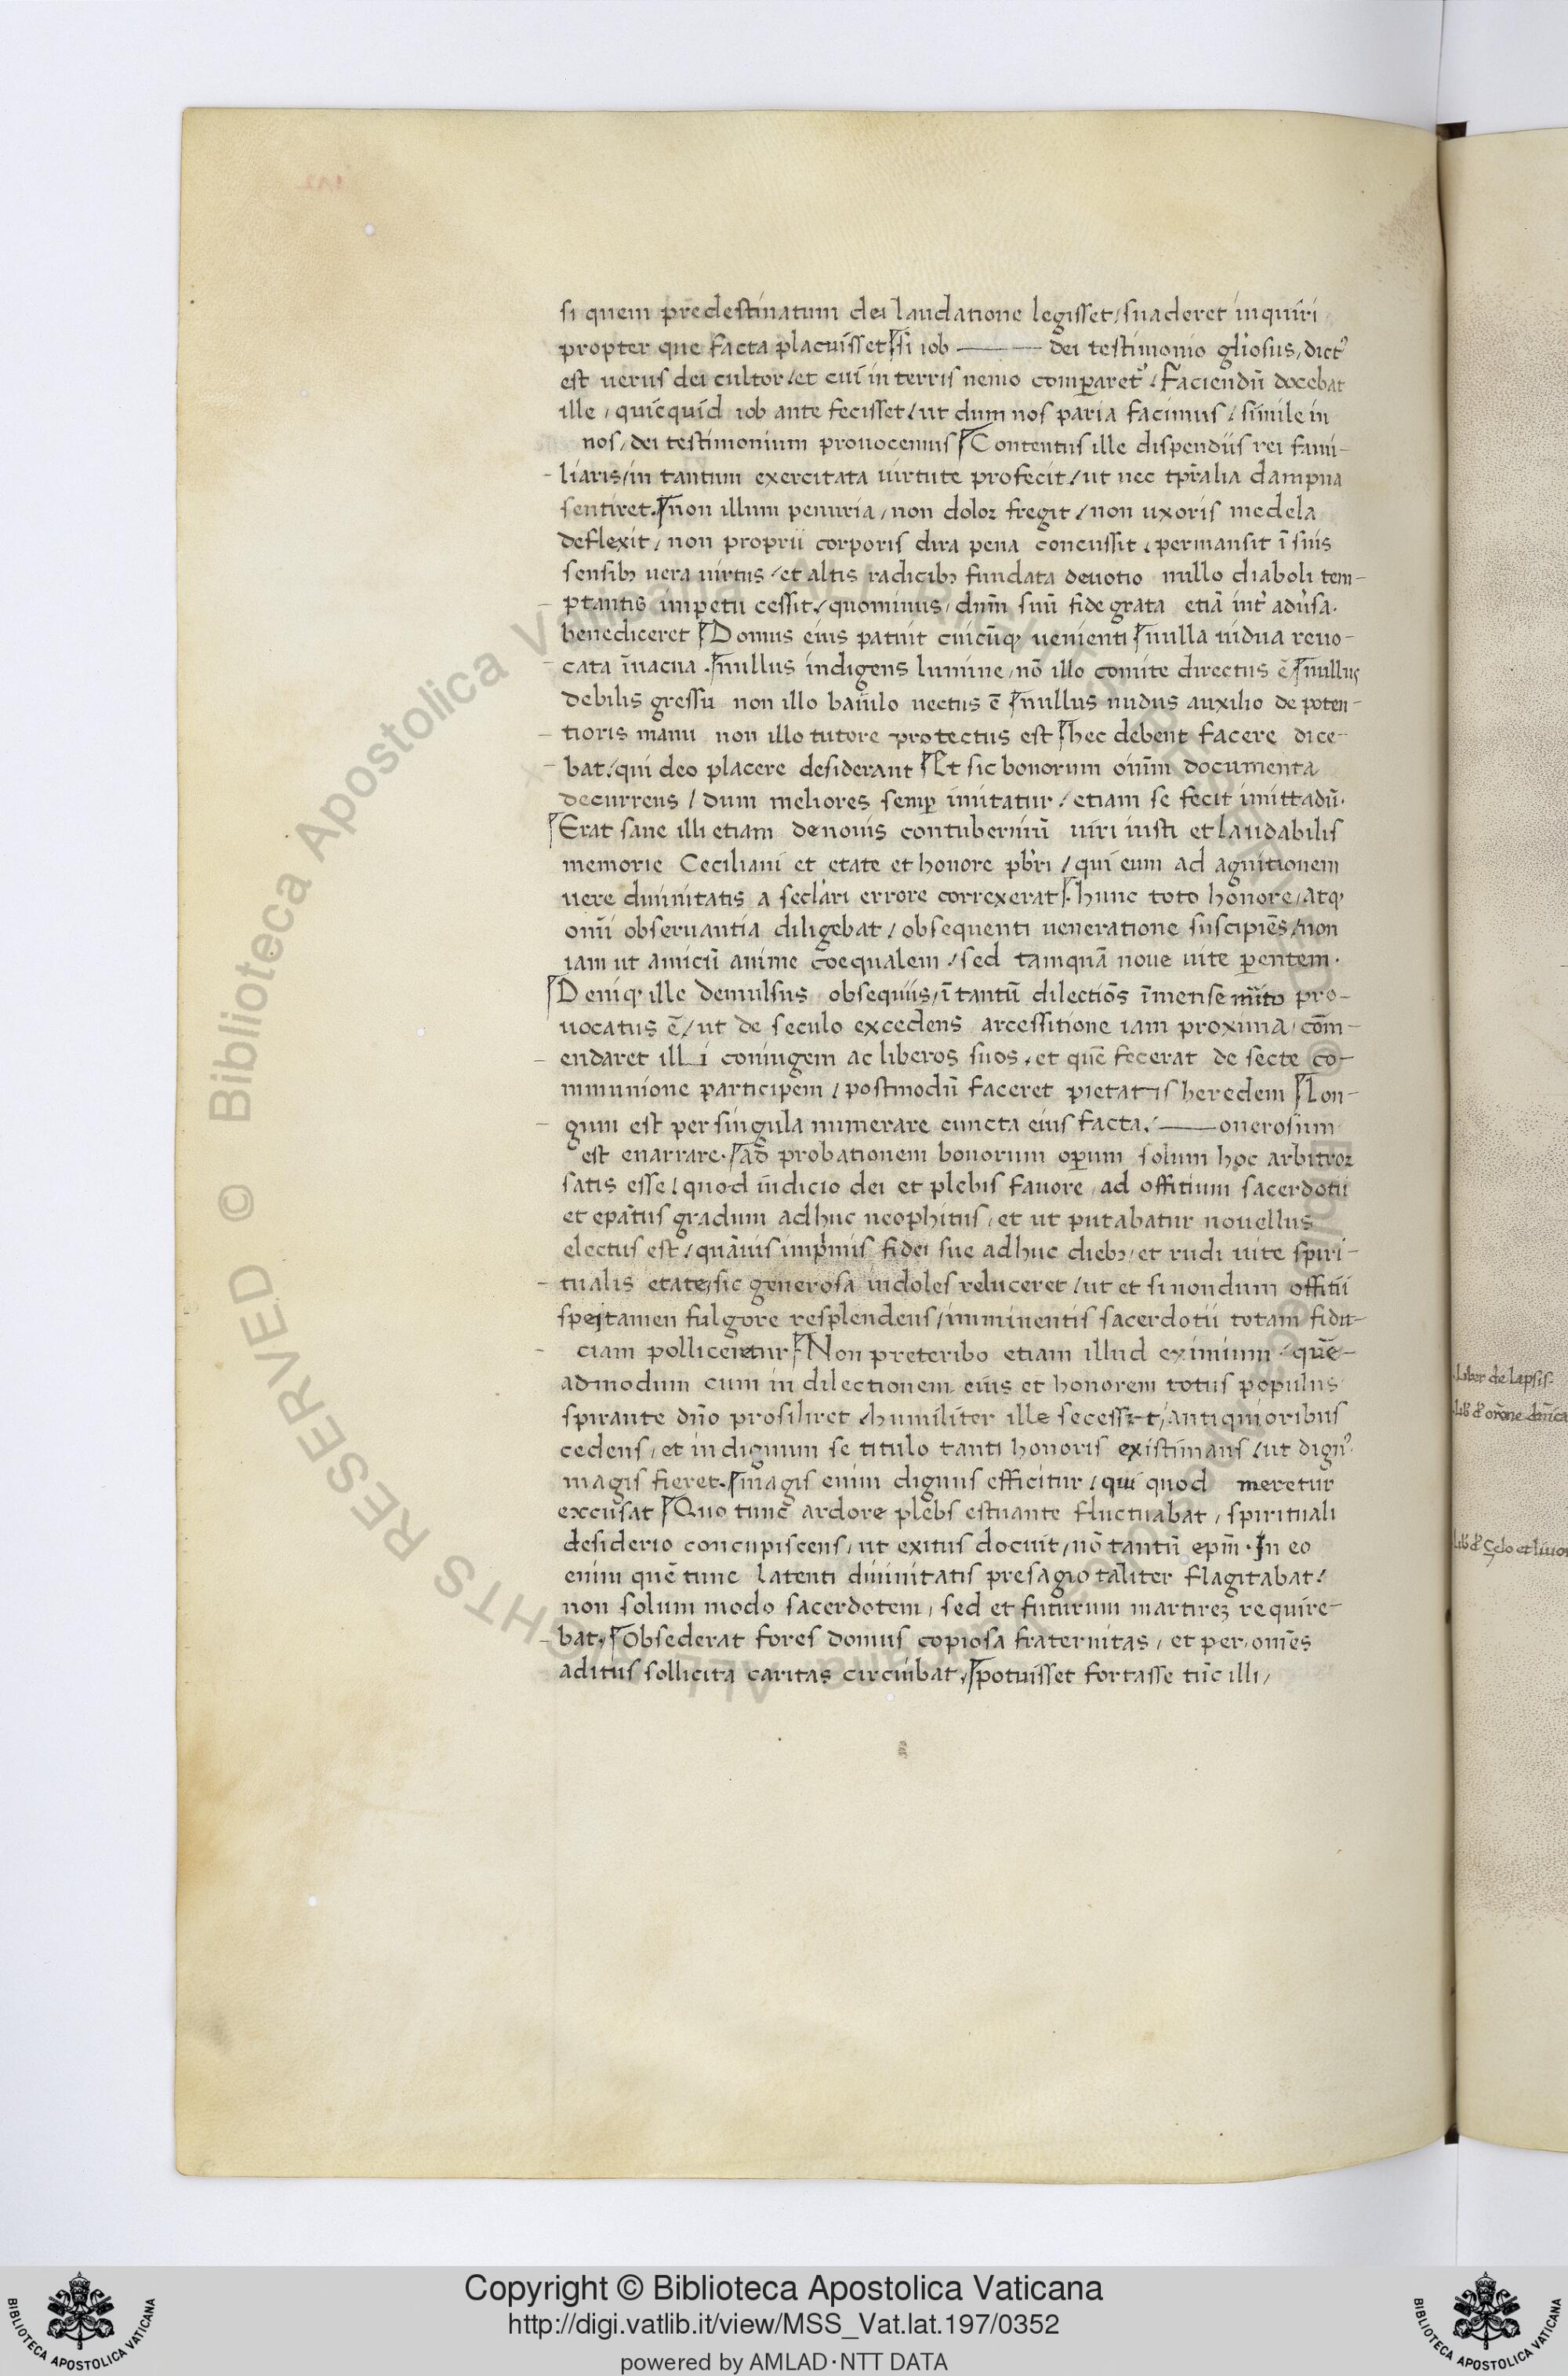 si quem predestinatum dei laudatione legisset / suaderet inquiri
propter que facta placuisset si iob ——— dei testimonio gl'iosus, dict⁹
est uerus dei cultor / et cui in terris nemo comparet⁹ / Faciendū docebat
ille / quicquid iob ante fecisset / ut dum nos paria facimus / simile in
nos / dei testimonium prouocemus Contentus ille dispendiis rei fami-
liaris / in tantum exercitata uirtute profecit / ut nec tpr̄alia dampna
sentiret. non illum penuria / non dolor fregit / non uxoris medela
deflexit / non proprii corporis dira pena concussit / permansit ī suis
sensibꝫ uera uirtus / et altis radicibꝫ fundata deuotio nullo diaboli tem-
ptantis impetu cessit / quominus / dnm̄ suū fide grata etiā int' adu'sa.
benediceret Domus eius patuit cuicūqꝫ uenienti nulla uidua reuo-
cata ī uacua. nullus indigens lumine / nō illo comite directus ē nullus
debilis gressu non illo baiulo uectus ē nullus nudus auxilio de poten-
tioris manu non illo tutore protectus est hec debent facere dice-
bat / qui deo placere desiderant Et sic bonorum om̄m documenta
decurrens / dum meliores semꝑ imitatur / etiam se fecit imittadū.
Erat sane illi etiam de nouis contuberniū uiri iusti et laudabilis
memorie Ceciliani et etate et honore pb'ri / qui eum ad agnitionem
uere diuinitatis a secl'ari errore correxerat. hunc toto honore / atqꝫ
om̄i obseruantia diligebat / obsequenti ueneratione suscipiēs / non
iam ut amicū anime coequalem / sed tamquā noue uite ꝑentem.
Deniqꝫ ille demulsus obsequiis / ī tantū dilectiōs ī mense m̄ito pro-
uocatus ē / ut de seculo excedens arcessitione iam proxima / cōm-
endaret illi coniugem ac liberos suos / et quē fecerat de secte co-
mmunione participem / postmodū faceret pietatis heredem Lon-
gum est per singula numerare cuncta eius facta. ——— onerosum
est enarrare. ad probationem bonorum oꝑum solum hoc arbitror
satis esse / quod iudicio dei et plebis fauore / ad offitium sacerdotii
et ep̄atus gradum adhuc neophitus / et ut putabatur nouellus
electus est / quāuis imp'mis fidei sue adhuc diebꝫ / et rudi uite spiri-
tualis etate / sic generosa indoles reluceret / ut et si nondum offitii
spei tamen fulgore resplendens / imminentis sacerdotii totam fidu-
ciam polliceretur. Non preteribo etiam illud eximium / quē-
admodum cum in dilectionem eius et honorem totus populus
spirante dn̄o prosiliret / humiliter ille secessit / antiquioribus
cedens / et indignum se titulo tanti honoris existimans / ut dign⁹
magis fieret. magis enim dignus efficitur / qui quod meretur
excusat Quo tunc ardore plebs estuante fluctuabat / spirituali
desiderio concupiscens / ut exitus docuit / nō tantū ep̄m. In eo
enim quē tunc latenti diuinitatis presagio taliter flagitabat /
non solum modo sacerdotem / sed et futurum martireꝫ require-
bat. Obsederat fores domus copiosa fraternitas / et per om̄es
aditus sollicita caritas circuibat. potuisset fortasse tūc illi /
Liber de lapsis.
Lib' d' or̄one dn̄ica
Lib' d' Çelo et liuo
Copyright © Biblioteca Apostolica Vaticana
http://digi.vatlib.it/view/MSS_Vat.lat.197/0352
powered by AMLAD·NTT DATA
BIBLIOTECA APOSTOLICA VATICANA
BIBLIOTECA APOSTOLICA VATICANA